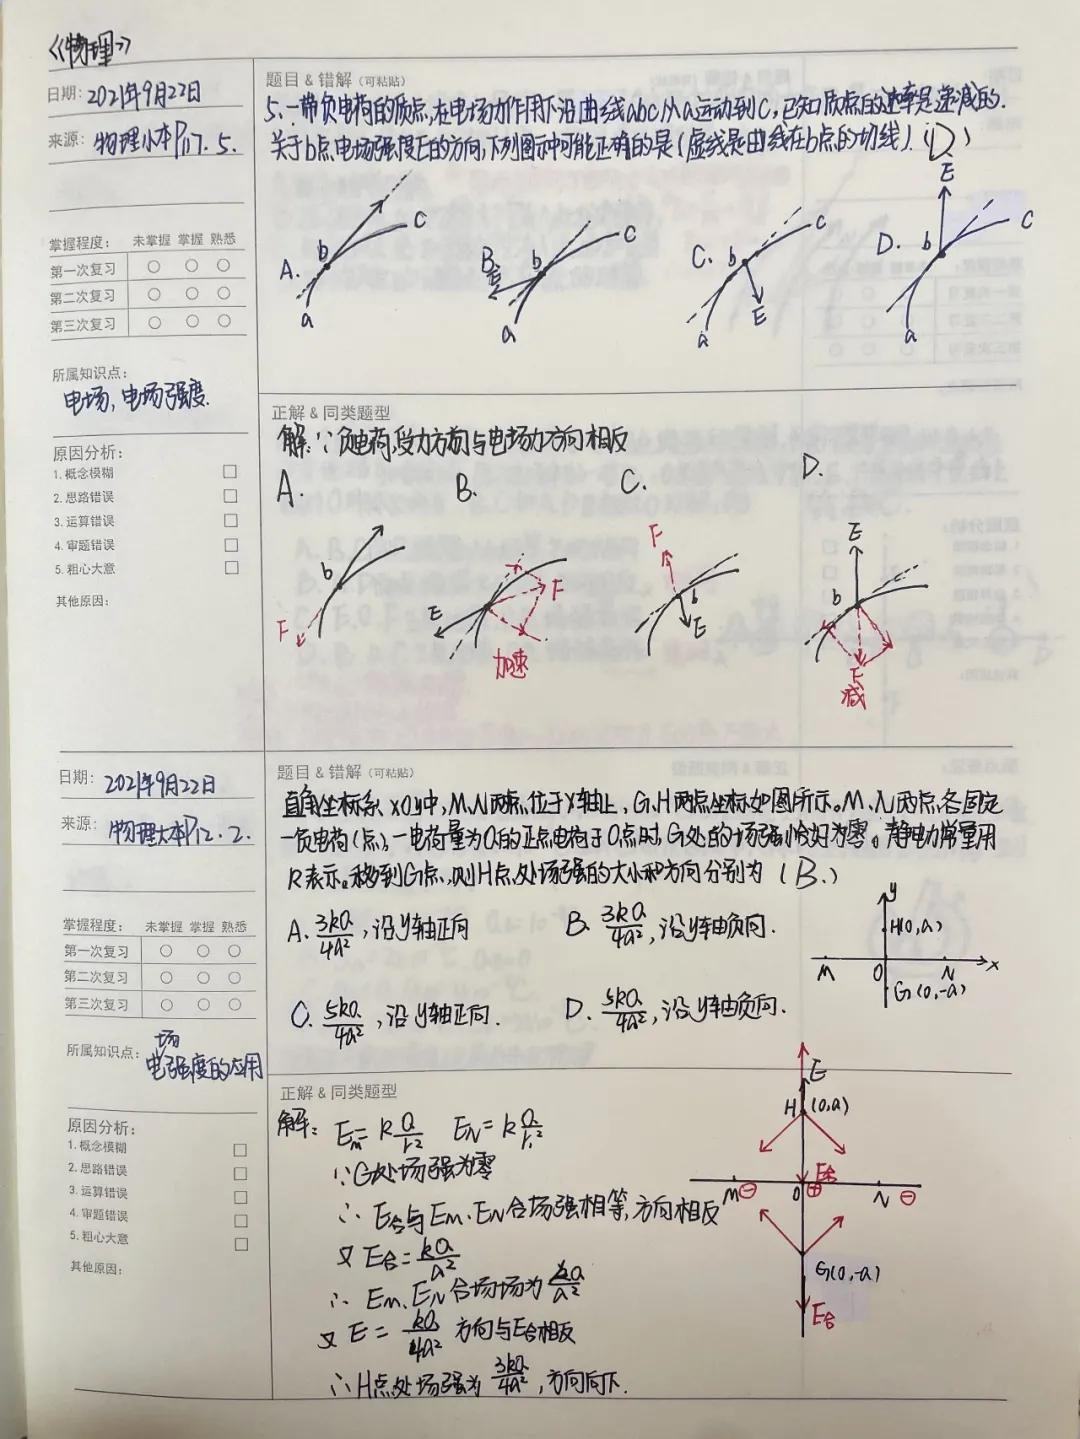 《物理》
日期: 2021年9月22日
来源: 物理小本P17. 5.
掌握程度: 未掌握 掌握 熟悉
第一次复习
第二次复习
第三次复习
所属知识点:
电场, 电场强度.
原因分析:
1. 概念模糊
2. 思路错误
3. 运算错误
4. 审题错误
5. 粗心大意
其他原因:
题目 & 错解 (可粘贴)
5. 一带负电荷的质点,在电场力作用下沿曲线abc从a运动到C,已知质点的速率是递减的.
关于b点电场强度E的方向,下列图示中可能正确的是(虚线是曲线在b点的切线).(D)
A. b C a
B. E b C a
C. b C E a
D. E b C a
正解 & 同类题型
解:∵负电荷,受力方向与电场力方向相反
A. B. C. D.
b F
E F 加速
F b E
E b F 减
日期: 2021年9月22日
来源: 物理大本P12. 2.
掌握程度: 未掌握 掌握 熟悉
第一次复习
第二次复习
第三次复习
所属知识点:
电场强度的应用
原因分析:
1. 概念模糊
2. 思路错误
3. 运算错误
4. 审题错误
5. 粗心大意
其他原因:
题目 & 错解 (可粘贴)
直角坐标系xOy中,M、N两点位于x轴上,G、H两点坐标如图所示。M、N两点各固定
一负电荷(点),一电荷量为Q的正点电荷于O点时,G处的场强恰好为零。静电力常量用
k表示。移到G点,则H点处场强的大小和方向分别为(B.)
A. 3kQ/4a², 沿y轴正向
B. 3kQ/4a², 沿y轴负向.
C. 5kQ/4a², 沿y轴正向.
D. 5kQ/4a², 沿y轴负向.
y
H(0,a)
M O N x
G(0,-a)
正解 & 同类题型
解: Em=kQ/r² EN=kQ/r²
∵G处场强为零
∴E合与Em、EN合场强相等,方向相反
又E合=kQ/a²
∴Em、EN合场场为kQ/a²
又E=kQ/4a² 方向与E合相反
∴H点处场强为3kQ/4a²,方向向下.
E
H (0,a)
E合
M⊖ O⊕ N⊖
G(0,-a)
E合